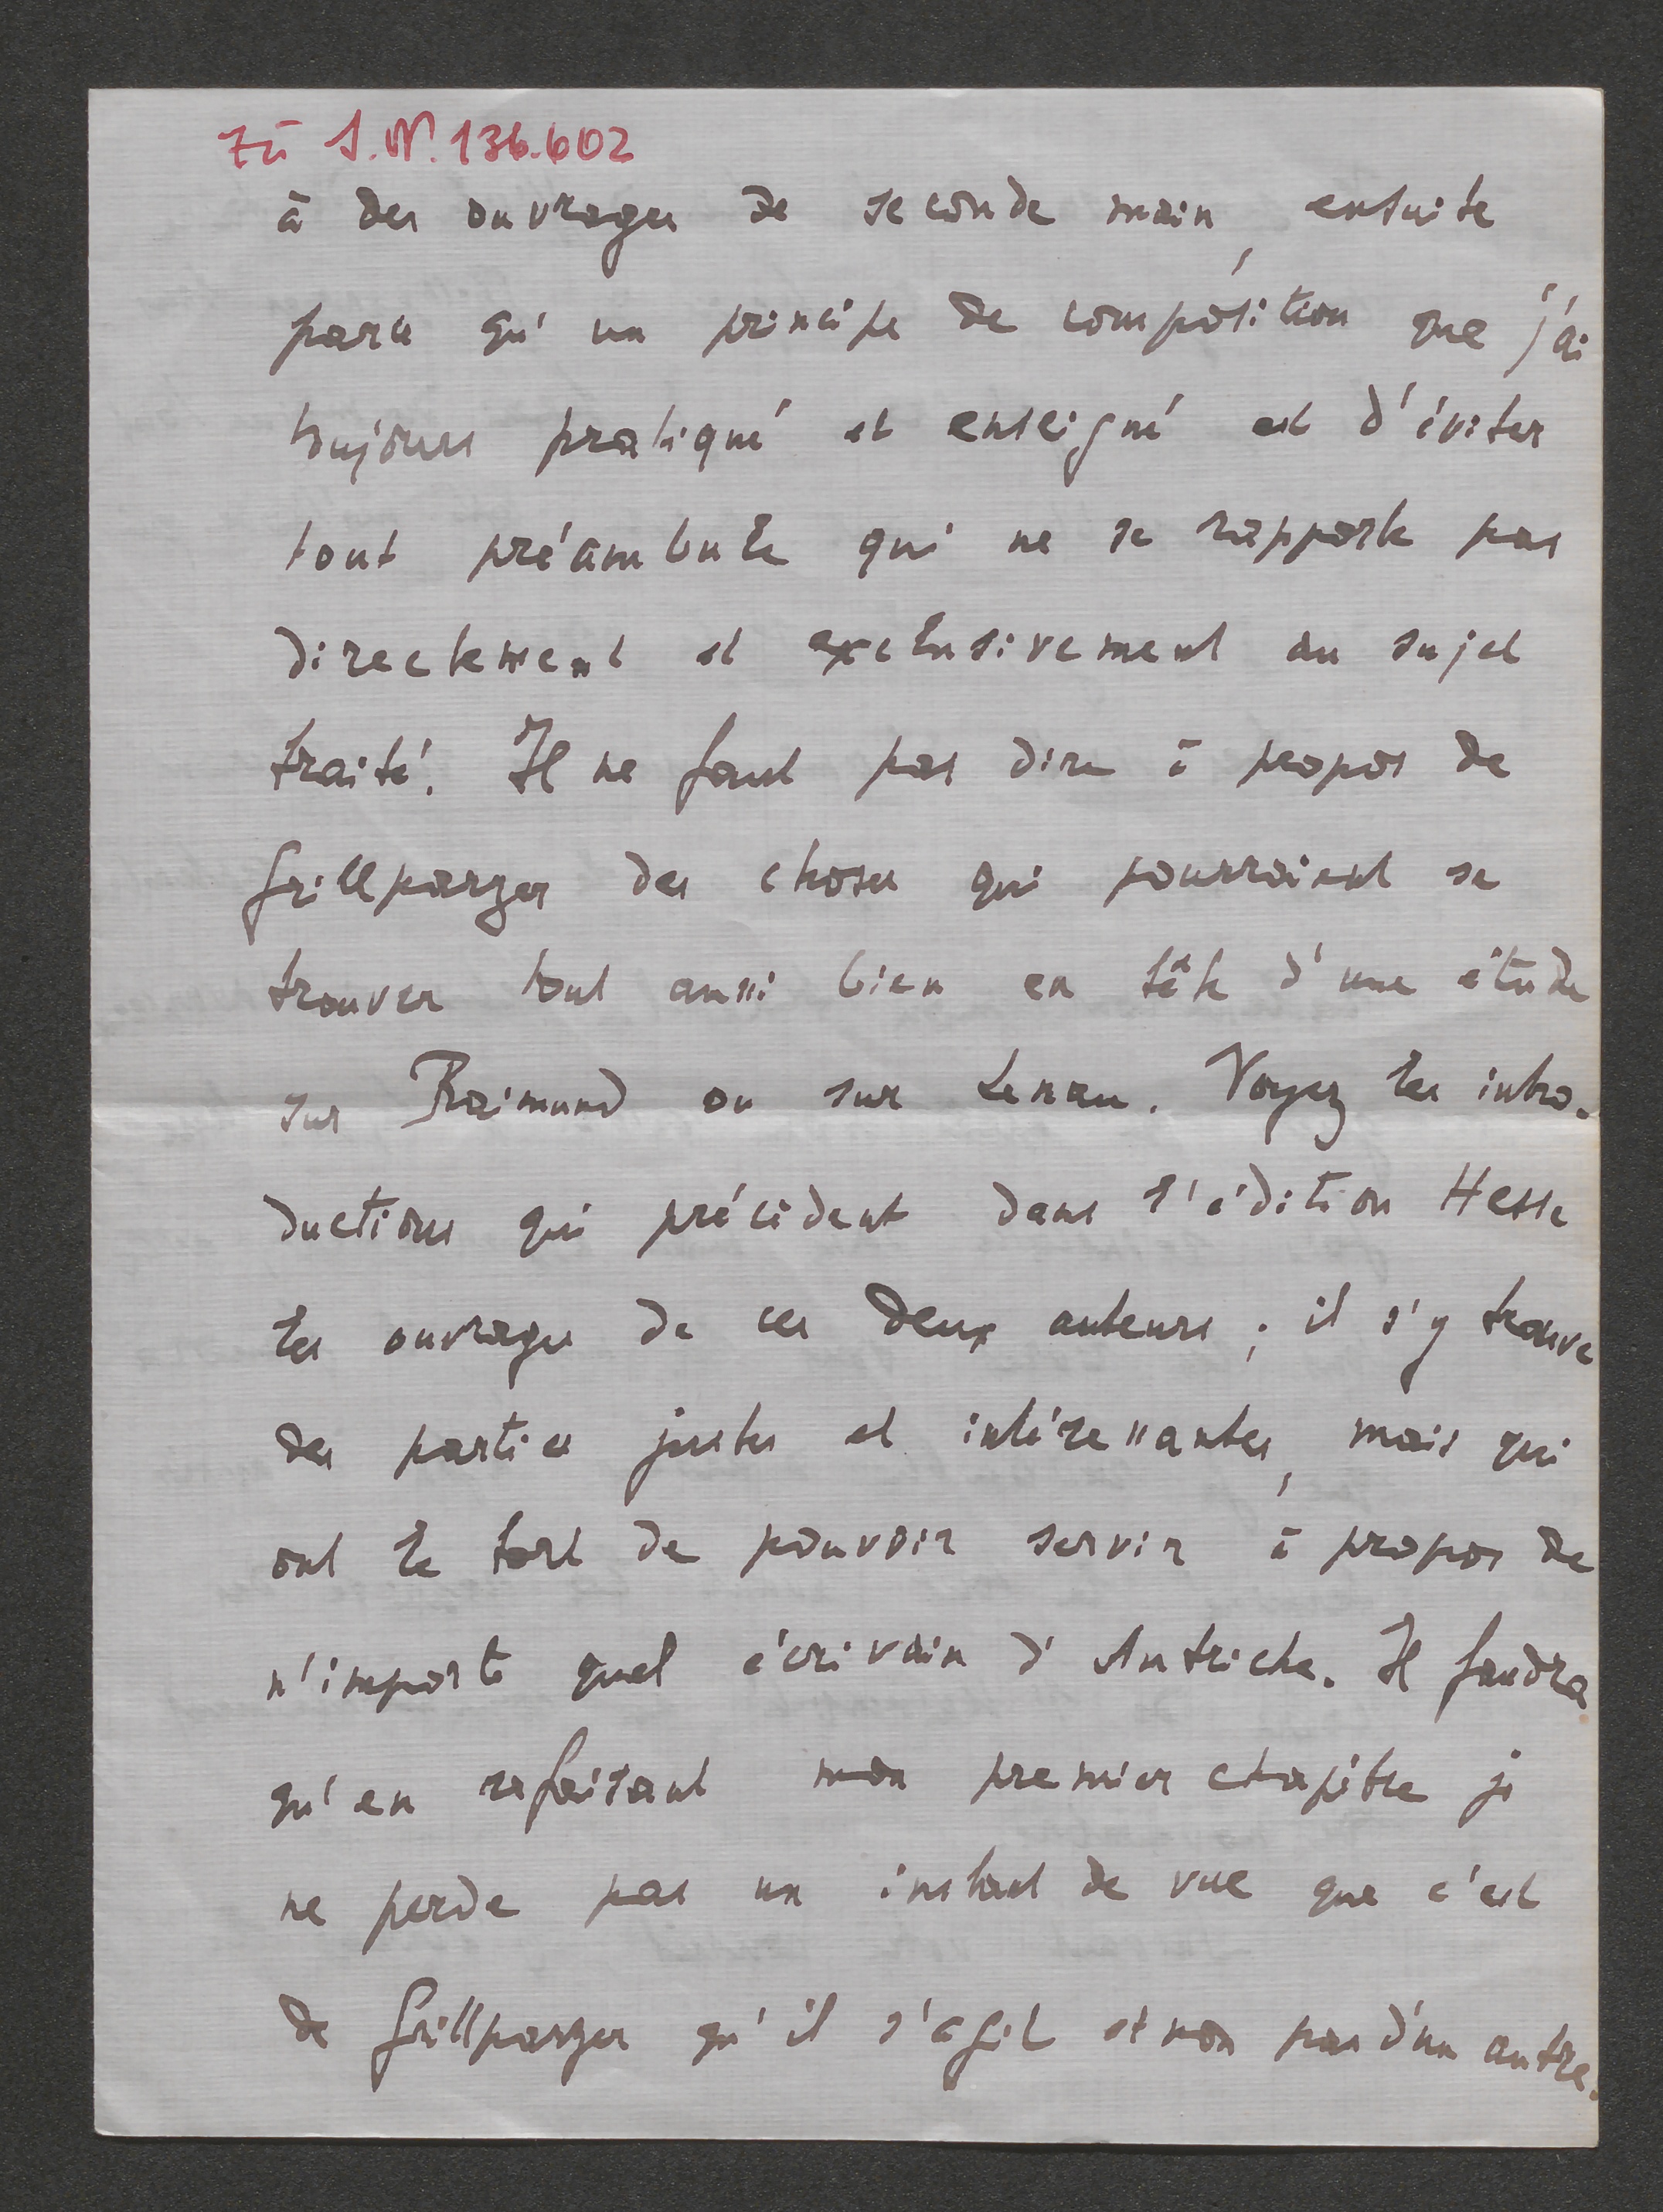 Zu I.N. 136.602
à des ouvrages de seconde main, ensuite
parce qu'un principe de composition que j'ai
toujours pratiqué et enseigné est d'éviter
tout préambule qui ne se rapporte pas
directement et exclusivement au sujet
traité. Il ne faut pas dire à propos de
Grillparzer des choses qui pourraient se
trouver tout aussi bien en tête d'une étude
sur Raimund ou sur Lenau. Voyez les intro-
ductions qui précèdent dans l'édition Hesse
les ouvrages de ces deux auteurs ; il s'y trouve
des parties justes et intéressantes, mais qui
ont le tort de pouvoir servir à propos de
n'importe quel écrivain d'Autriche. Il faudra
qu'en refaisant mon premier chapitre je
ne perde pas un instant de vue que c'est
de Grillparzer qu'il s'agit et non pas d'un autre.